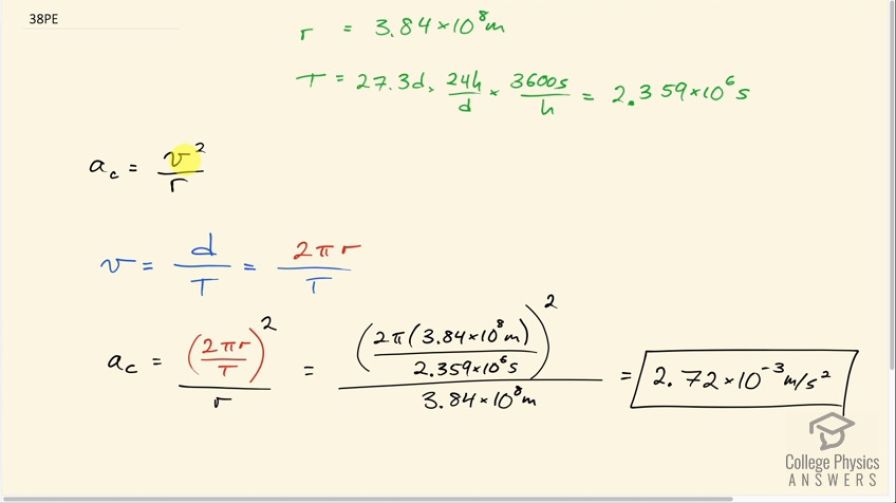 38PE
r = 3.84×10⁸m
T = 27.3d × 24h/d × 3600s/h = 2.359×10⁶s
a_c = v²/r
v = d/T = 2πr/T
a_c = (2πr/T)²/r = (2π(3.84×10⁸m)/2.359×10⁶s)²/3.84×10⁸m = 2.72×10⁻³m/s²
College Physics
ANSWERS